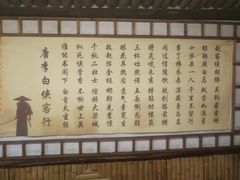 趙客縵胡纓 吳鉤霜雪明
銀鞍照白馬 颯沓如流星
十步殺一人 千里不留行
事了拂衣去 深藏身與名
閑過信陵飲 脫劍膝前橫
將炙啖朱亥 持觴勸侯嬴
三杯吐然諾 五嶽倒為輕
眼花耳熱後 意氣素霓生
救趙揮金槌 邯鄲先震驚
千秋二壯士 烜赫大梁城
縱死俠骨香 不慚世上英
誰能書閣下 白首太玄經
唐李白俠客行